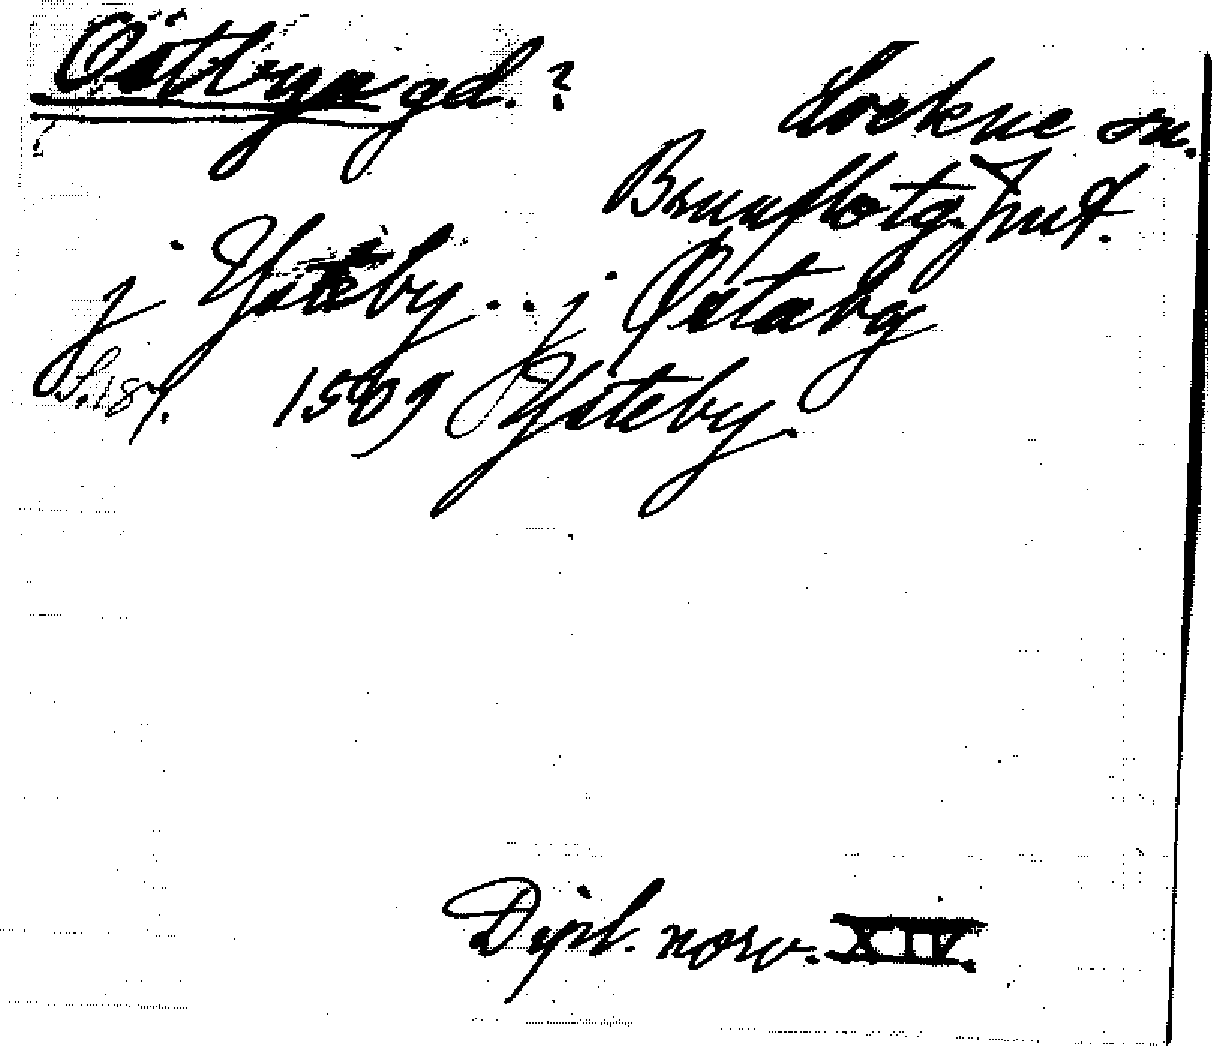 Östbyn gd. ?
Lockne sn.
Brunflo tg. Jmt.
j Ysteby . . j Östabÿ
S. 187. 1509 Ysteby.
Dipl. norv. XIV.